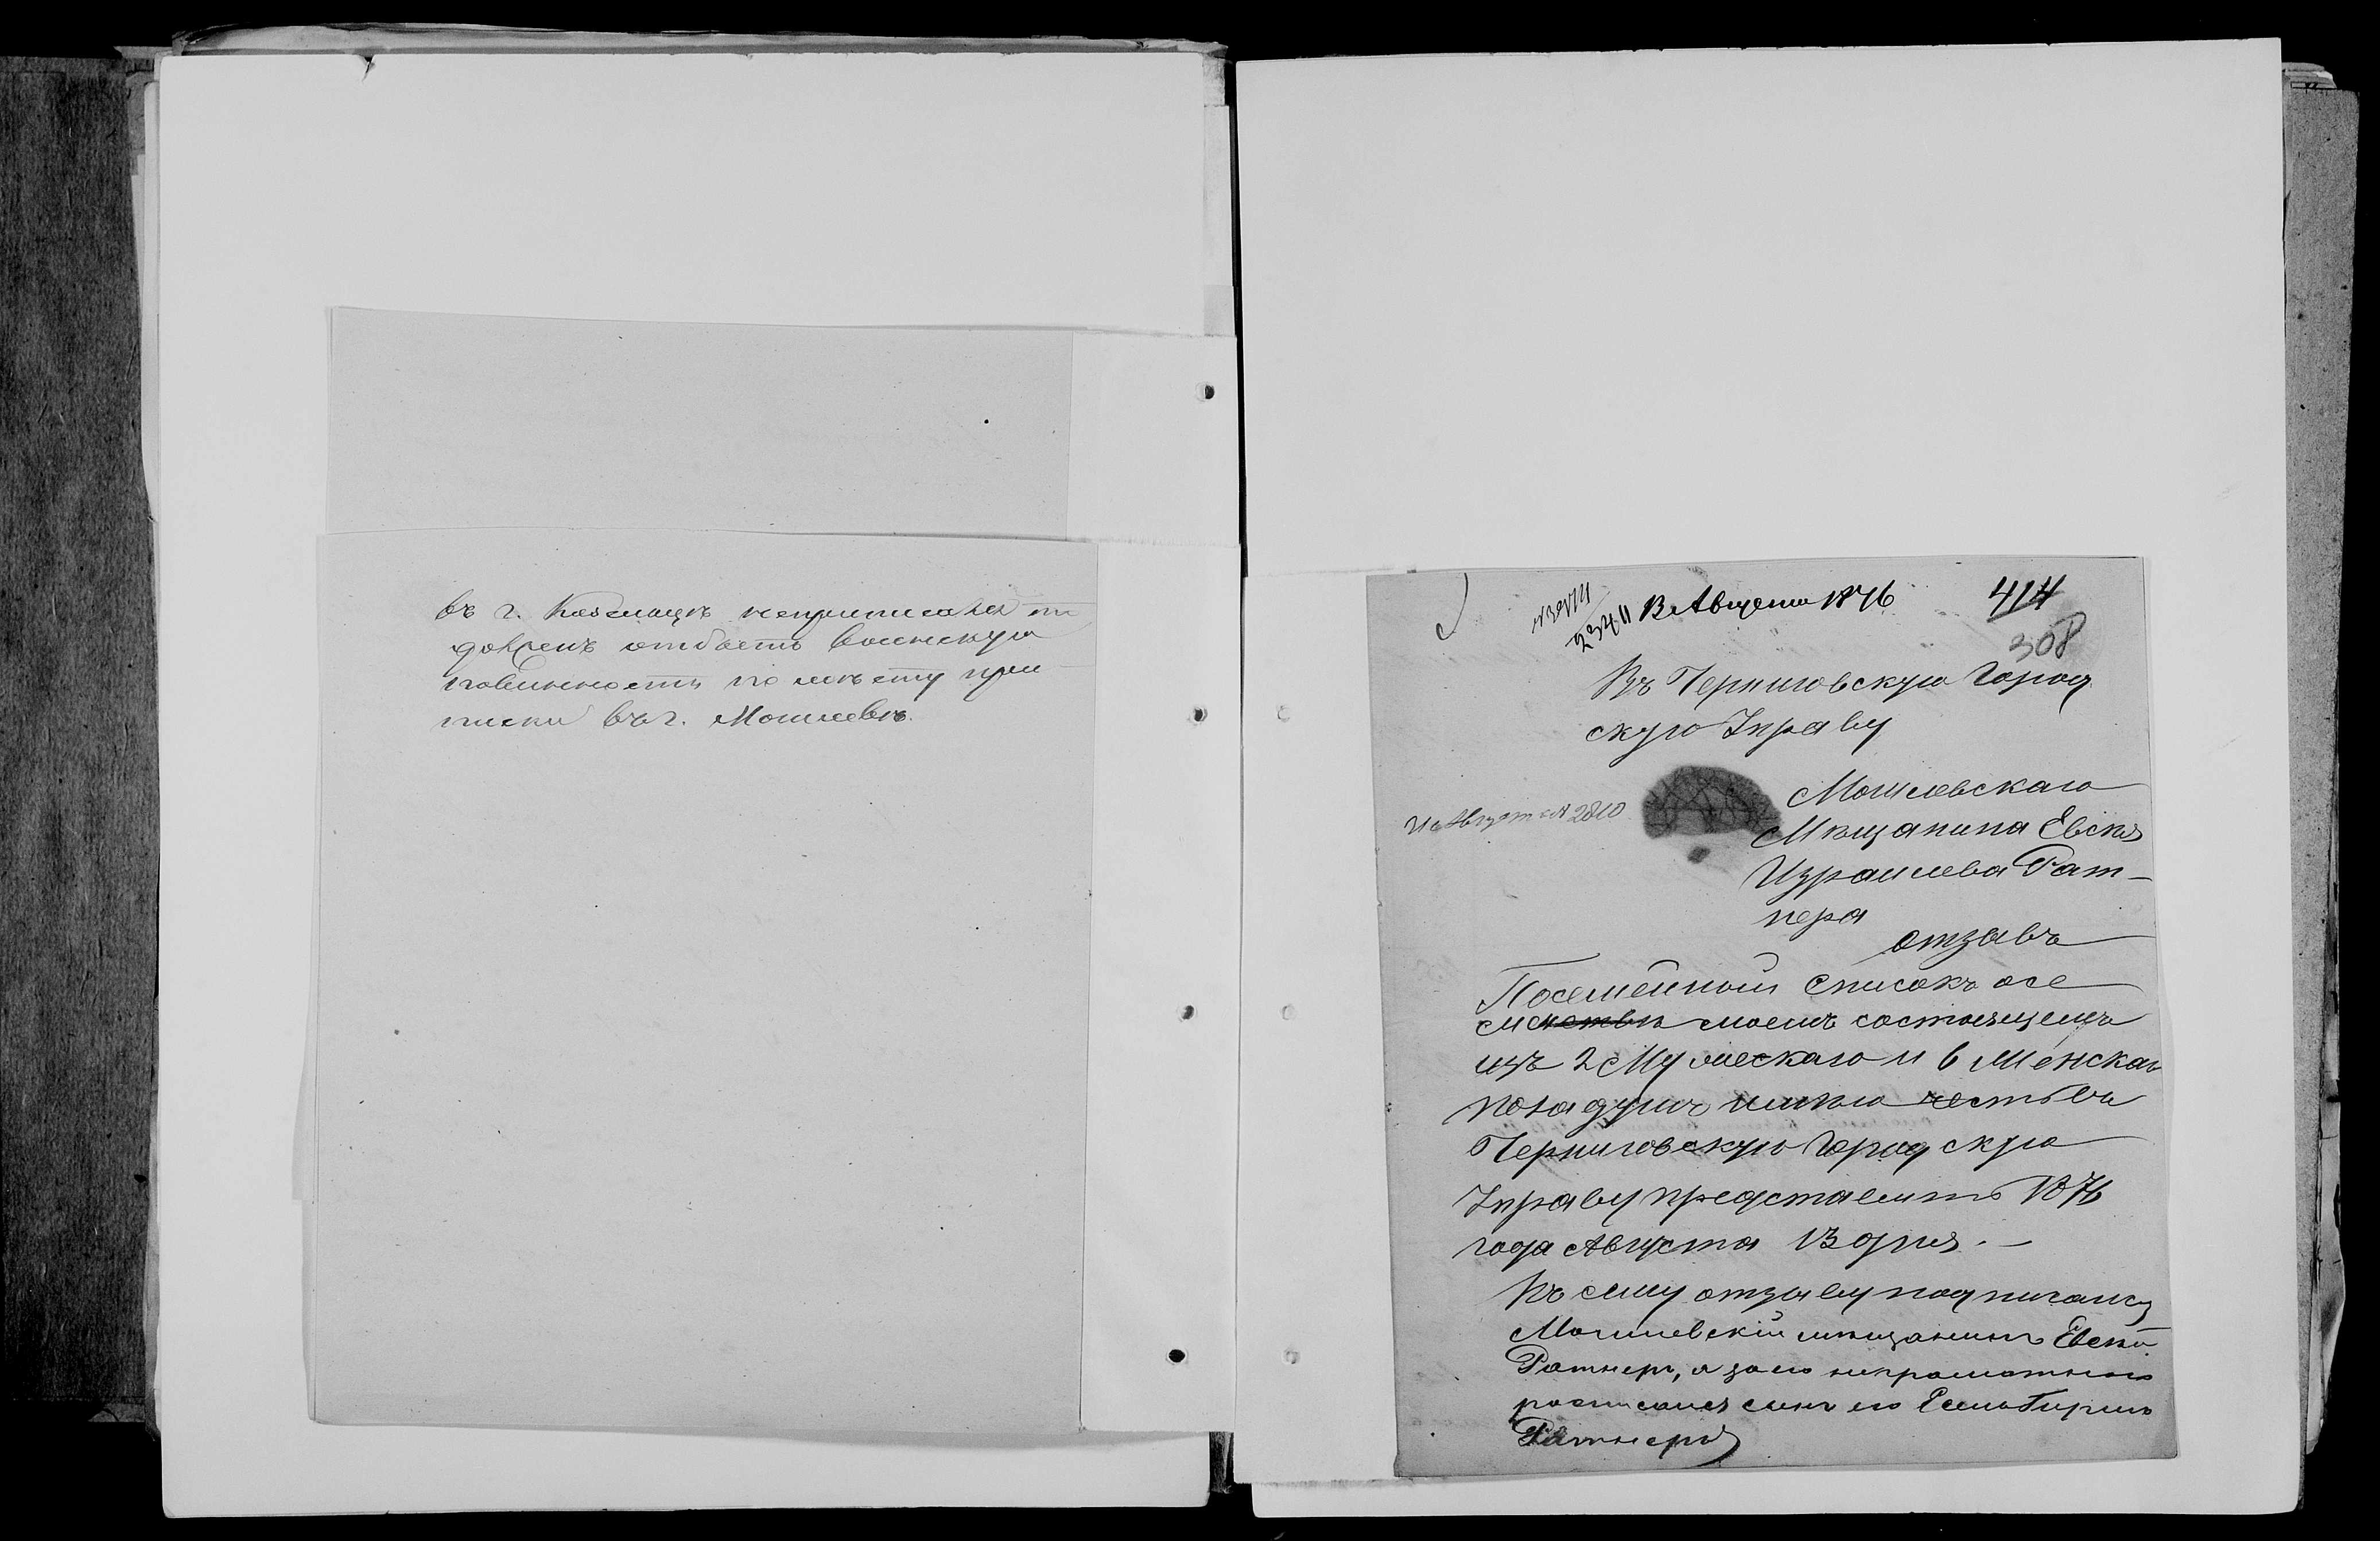 въ г. Козельцѣ неприписанъ то
долженъ отбыть воинскую
повинность по мѣсту при
писки въ г. Могилевѣ.
13 Августа 1876
414
308
Въ Черниговскую Город
скую Управу
Могилевскаго
Мѣщанина Евсѣя
Израилева Рат-
нера
отзывъ
Августа № 2810
Посемейный списокъ осе
моемъ состоящемъ
изъ 2 Мужескаго и 6 Женскаго
пола душъ имѣю честь въ
Черниговскую Городскую
Управу представить 1876
года Августа 13 дня. —
Къ сему отзыву подписался
Могилевскій мѣщанинъ Евсѣй
Ратнеръ, а за его неграмотного
росписался сынъ его Гиршъ
Ратнеръ